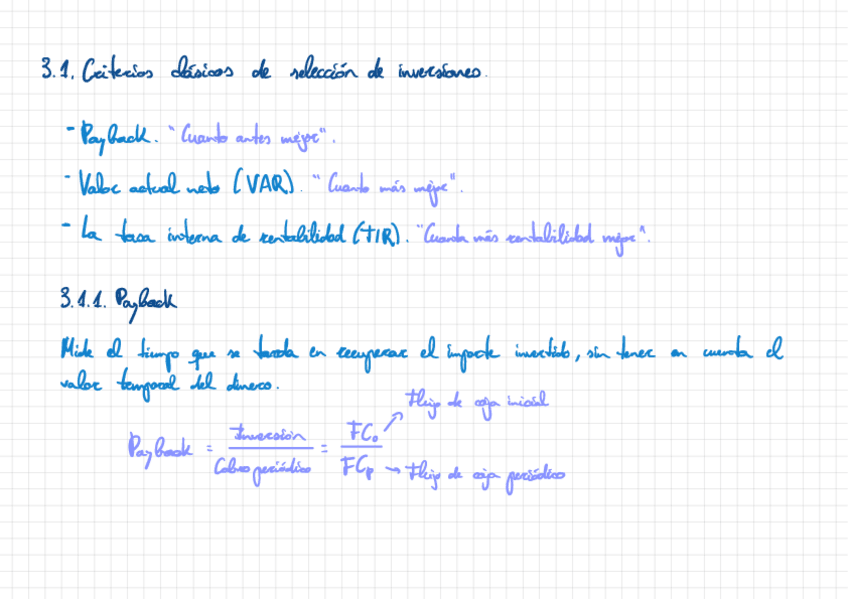 3.1. Criterios clásicos de selección de inversiones.
- Payback. "Cuanto antes mejor".
- Valor actual neto (VAR). "Cuanto más mejor".
- La tasa interna de rentabilidad (TIR). "Cuanta más rentabilidad mejor".
3.1.1. Payback
Mide el tiempo que se tarda en recuperar el importe invertido, sin tener en cuenta el
valor temporal del dinero.
Payback = Inversión / Cobro periódico = FC₀ / FCp
→ Flujo de caja inicial
→ Flujo de caja periódico